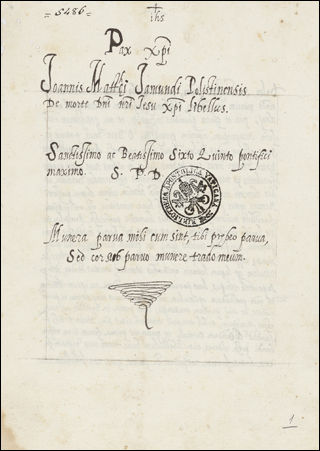 = 5486 =
ihs
Pax Xpi
Joannis Matthei Jamundi Polistinensis
De morte Dni nri Jesu Xpi libellus.
Santissimo ac Beatissimo Sixto Quinto pontifici
maximo. S. P. D
BIBLIOTHECA APOSTOLICA VATICANA
Munera parva mihi cum sint, tibi præbeo parva,
Sed cor sub parvo munere trado meum.
1